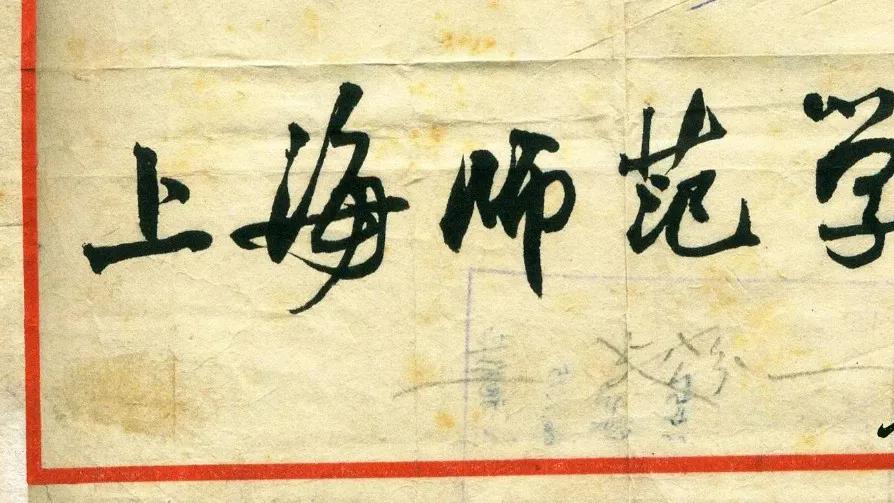 上海师范学